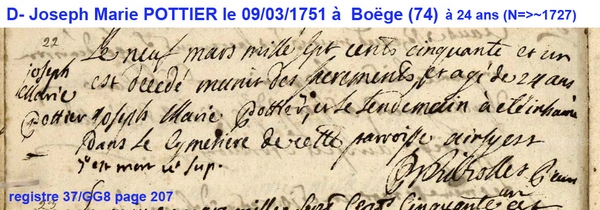 D- Joseph Marie POTTIER le 09/03/1751 à Boëge (74) à 24 ans (N=>~1727)
22
joseph
Marie
Pottier
Le neuf mars mille sept cents cinquante et un
est décédé munit des sacrements, et agé de 24 ans
Joseph Marie Pottier, et le lendemain a eté inhumé
Dans le Cymetiere de cette parroisse ainsy est
registre 37/GG8 page 207